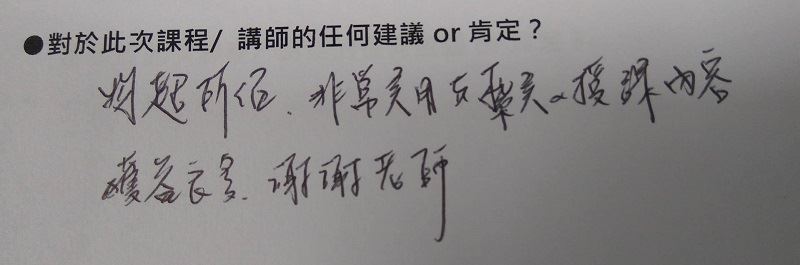 ●對於此次課程/ 講師的任何建議 or 肯定？
非常實用友善實的授課內容
獲益良多. 謝謝老師